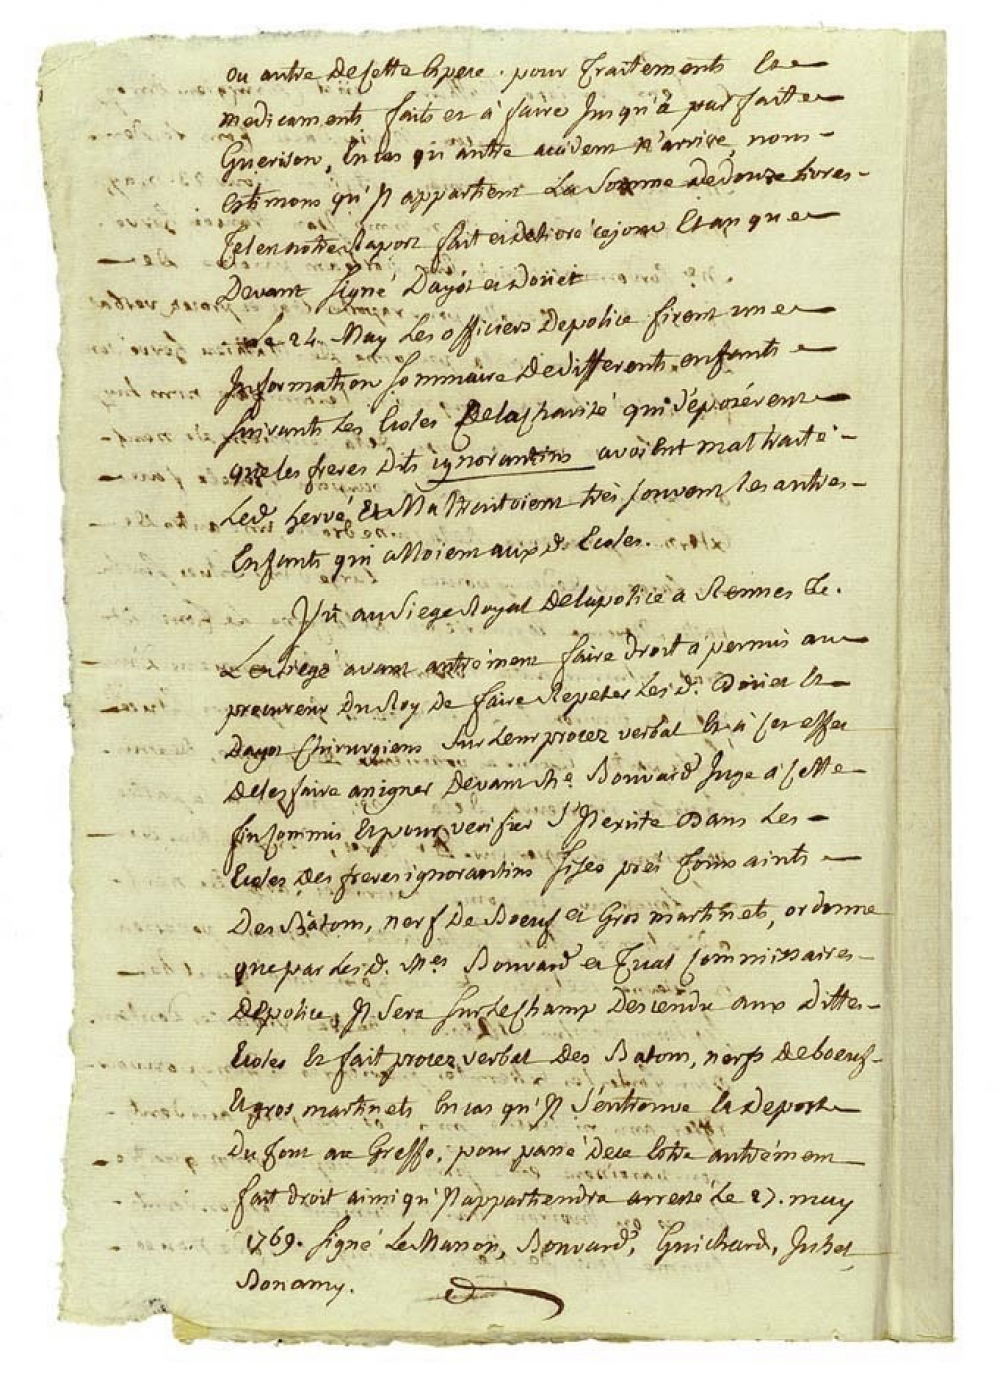 ou autre de cette espece. pour traitements et
medicaments faits et à faire Jusqu'à parfaite
Guerison, En cas qu'autre accident n'arrive, nous
Estimons qu'Il appartient La Somme de douze Livres
Tel en notre Raport fait et delivré ce jour Et an que
Devant Signé Dayot et Doriet
Le 24. May Les officiers de police firent une
Information Sommaire De differents enfants
Suivants Les Ecoles De la Charité qui déposérent
que les freres Dits ignorantins avoient maltraité
Led. hervé Et Maltraitoient très souvent les autres
Enfants qui alloient aux d. Ecoles.
Vû au Siege Royal De la police a Rennes &c.
Le Siege avant autrement faire droit a permis au
procureur Du Roy De faire Repeter Les d. Doriet Et
Dayot Chirurgiens Sur Leur procez verbal Et à cet effet
De les faire assigner Devant Me. Bouvard Juge à cette
fin Commis Et pour verifier S'Il existe Dans Les
Ecoles Des freres ignorantins Sises prés Toussaints
Des Bâtons, nerf De Boeuf et Gros martinets, ordonne
que par Les d. Mes. Bouvard et Tual Commissaires
De police, Il Sera Sur Le Champ Descendu aux dittes
Ecoles Et fait procez verbal Des Batons, nerfs de boeuf
Et gros martinets En cas qu'Il S'en trouve Et Deport
Du tout au Greffe, pour passé de ce Estre autrément
fait droit ainsi qu'Il appartiendra arresté Le 27. may
1769. Signé Le Bouvard, Guichard,
Bonamy.